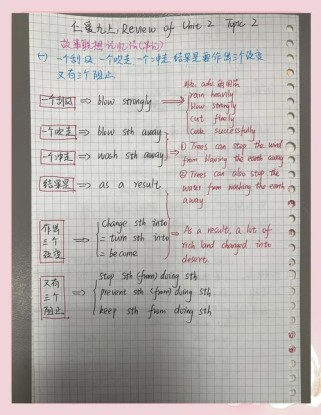 仁爱九上: Review of Unit 2 Topic 2
故事联想记忆法(笔记)
(一) 一个刮风 一个吹走 一个冲走 结果是要作出三个改变
又有三个阻止
一个刮风 ⇒ blow strongly ⇒
rain heavily
blow strongly
cut finely
cook successfully
一个吹走 ⇒ blow sth away
一个冲走 ⇒ wash sth away
① Trees can stop the wind
from blowing the earth away
② Trees can also stop the
water from washing the earth
away
结果是 ⇒ as a result
作出
三个
改变
⇒ Change sth into
= turn sth into
= become
⇒ As a result, a lot of
rich land changed into
desert
又有
三个
阻止
⇒ Stop sth (from) doing sth
prevent sth (from) doing sth
keep sth from doing sth